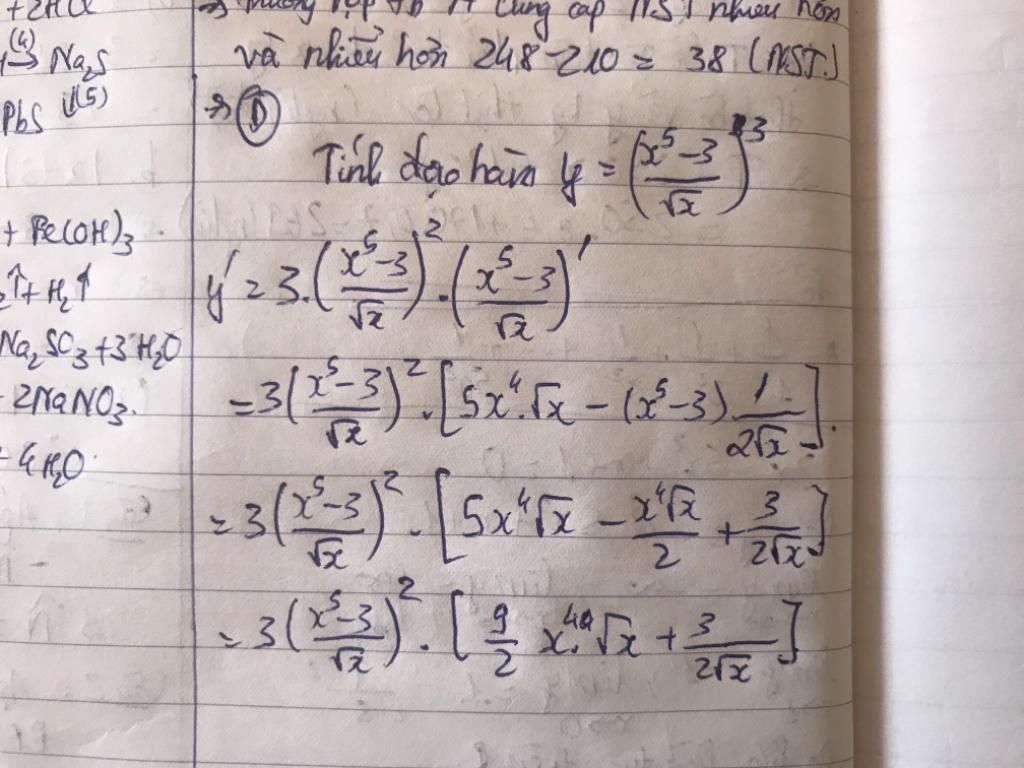 +2HCl
(4)→ Na₂S
PbS ↓(5)
+ Fe(OH)₃
↑ + H₂↑
Na₂SO₃ + 3H₂O
2NaNO₃.
4H₂O
cung cấp NST nhiều hơn
và nhiều hơn 248 - 210 = 38 (NST)
⇒ Ⓓ
Tính đạo hàm y = ((x⁵ - 3)/√x)³
y' = 3.((x⁵ - 3)/√x)² . ((x⁵ - 3)/√x)'
= 3((x⁵ - 3)/√x)² . [5x⁴.√x - (x⁵ - 3).1/(2√x)].
= 3((x⁵ - 3)/√x)² . [5x⁴√x - x⁴√x/2 + 3/(2√x)]
= 3((x⁵ - 3)/√x)² . [9/2 x⁴.√x + 3/(2√x)]